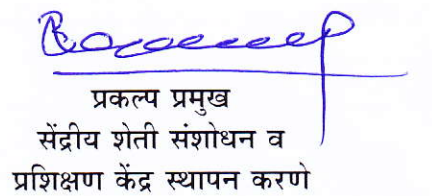 प्रकल्प प्रमुख
सेंद्रीय शेती संशोधन व
प्रशिक्षण केंद्र स्थापन करणे